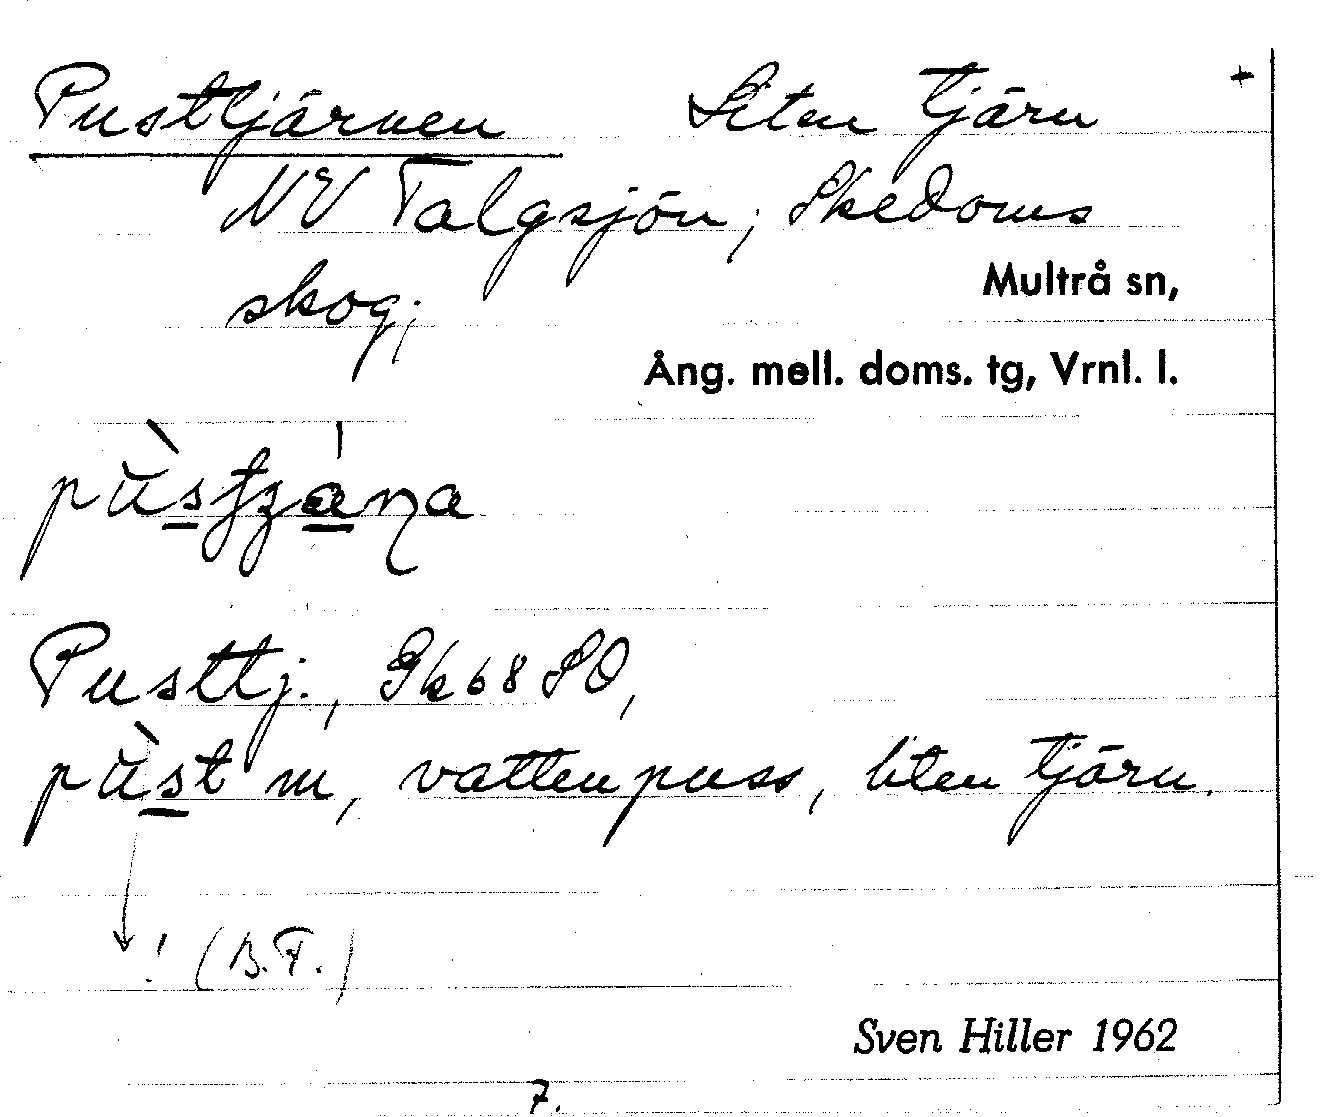 Pusttjärnen Liten tjärn +
NV Talgsjön, Skedoms
skog;
Multrå sn,
Ång. mell. doms. tg, Vrnl. l.
Pusttj., Gk 68 SO,
pùst m, vattenpuss, liten tjärn.
! (B.F.)
Sven Hiller 1962
7.